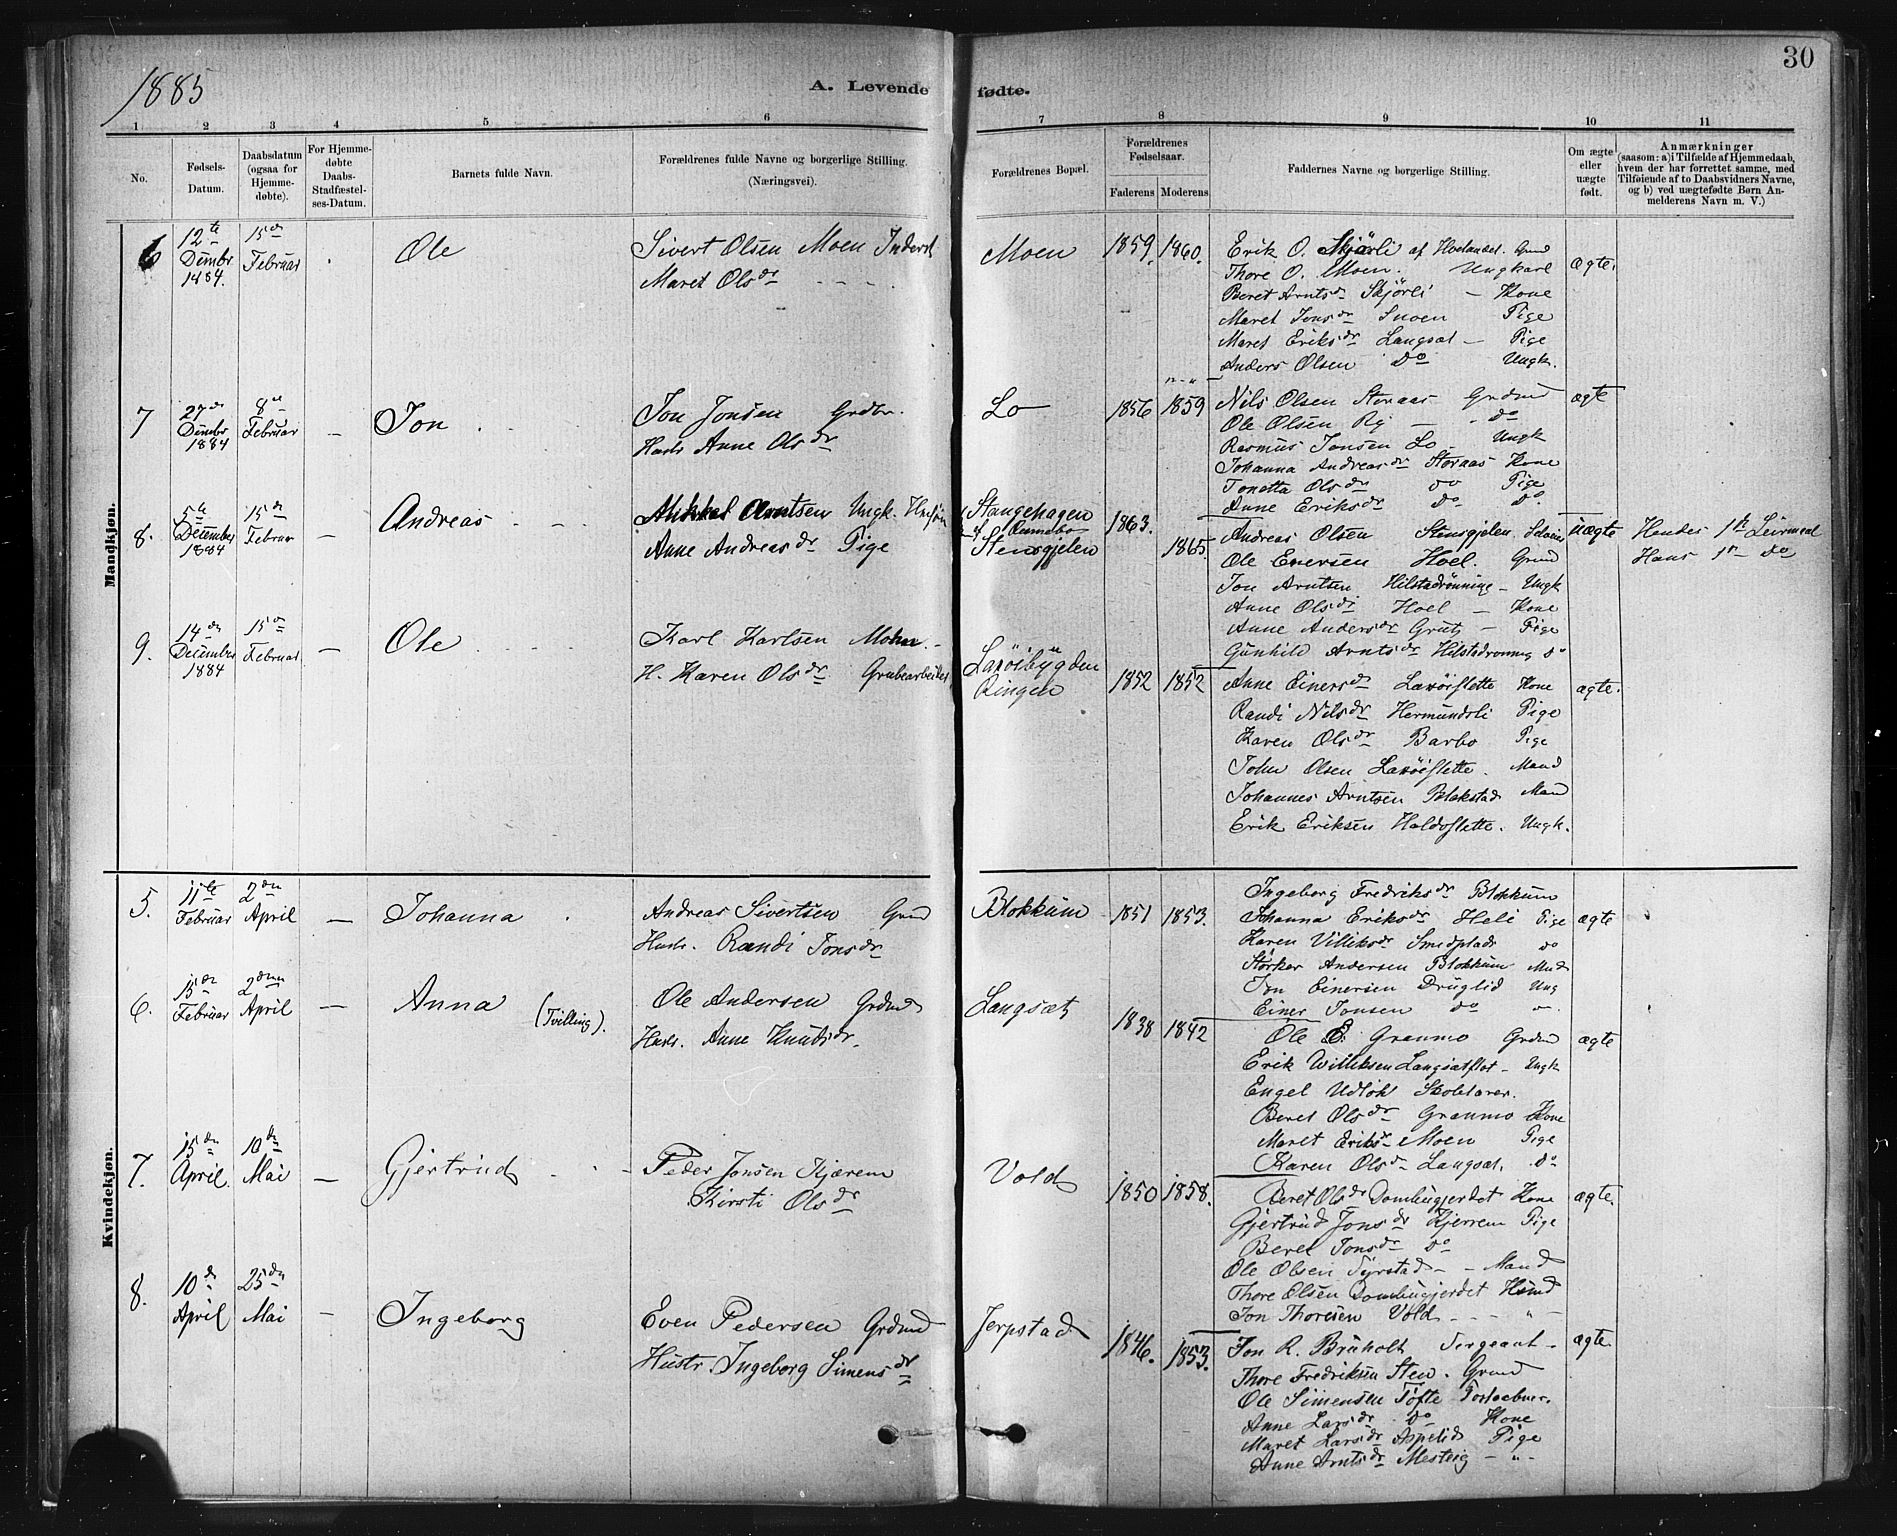 30
1885
A. Levende fødte.
1 2 3 4 5 6 7 8 9 10 11
No.
Fødsels-
Datum.
Daabsdatum
(ogsaa for
Hjemme-
døbte).
For Hjemme-
døbte
Daabs-
Stadfæstel-
ses-Datum.
Barnets fulde Navn.
Forældrenes fulde Navne og borgerlige Stilling.
(Næringsvei).
Forældrenes Bopæl.
Forældrenes
Fødselsaar.
Faderens Moderens
Faddernes Navne og borgerlige Stilling.
Om ægte
eller
uægte
født.
Anmærkninger
(saasom: a) i Tilfælde af Hjemmedaab,
hvem der har forrettet samme, med
Tilføiende af to Daabsvidners Navne,
og b) ved uægtefødte Børn An-
melderens Navn m. V.)
Mandkjøn.
6 12te Dcmbr 1884. 15de Februar Ole
Sivert Olsen Moen Inderst
Maret Olsdr
Moen 1859. 1860.
Erik O. Skjørli af Hoelandet. Grmd
Thore O. Moen. Ungkarl
Beret Arntsdr Skjørli – Kone
Maret Jonsdr Snoen Pige
Maret Eriksdr Langsæt – Pige
Anders Olsen Do Ungk.
ægte.
7 27de Dcmbr 1884 8de Februar – Jon
Jon Jonsen Grdbr.
Hustr Anne Olsdr
Lo 1856 1859
Nils Olsen Storaas Grdmd
Ole Olsen Ry – do
Rasmus Jonsen Lo – Ungk
Johanna Andreasdr Storaas Kone
Tonetta Olsdr do Pige
Anne Eriksdr do do
ægte
8. 5te December 1884 15de Februar – Andreas
Mikkel Arntsen Ungk.
Anne Andreasdr Pige
Stangehagen
Stensgjelen
1863. 1865
Andreas Olsen Stensgjelen
Ole Enersen Hoel. Grmd
Jon Arntsen Hilstadrønning – Ungk
Anne Olsdr Hoel – Kone
Anne Andersdr Grut – Pige
Gunhild Arntsdr Hilstadrønning do
Uægte
Hendes 1ste Leiermaal
Hans 1ste Do
9. 14de December 1884 15de Februar – Ole
Karl Karlsen Mohn
H. Karen Olsdr Grubearbeider
Laxøibygden
Ringen
1852 1852
Anne Einersdr Laxøislette Kone
Randi Nilsdr Hermundsli Pige
Karen Olsdr Barbo Pige
John Olsen Laxøislette. Mand
Johannes Arntsen Blokstad Mand
Erik Eriksen Haldoslette. Ungk.
ægte.
Kvindekjøn.
5. 11te Februar 2den April – Johanna
Andreas Sivertsen Grmd
Hustr. Randi Jonsdr
Blokkum 1851 1853.
Ingeborg Fredriksdr Blokkum
Johanna Eriksdr Heli Pige
Karen Villiksdr Smedplads do
Størker Andersen Blokkum Mnd
Jon Einersen Druglid Ung
Einer Jonsen do
ægte
6. 15de Februar 2den April – Anna (Tvilling).
Ole Andersen Grdmd
Hustr. Anne Knutsdr.
Langsæt 1838 1842
Ole E. Granmo Grdmd
Erik Williksen Langsætflot – Ungk
Engel Udløk Skolelærer.
Beret Olsdr Granmo Kone
Maret Eriksdr Moen Pige
Karen Olsdr Langsæt. do
ægte
7. 15de April. 10de Mai – Gjertrud
Peder Jonsen Kjærem
Kirsti Olsdr
Vold 1850 1858.
Beret Olsdr Dombugjerdet Kone
Gjertrud Jonsdr Kjerrem Pige
Beret Jonsdr do
Ole Olsen Syrstad – – Mand
Thore Olsen Dombugjerdet
Jon Thoresen Vold
ægte.
8. 10de April 25de Mai – Ingeborg
Even Pedersen Grdmd
Hustr. Ingeborg Simensdr
Jerpstad 1846. 1853.
Jon R. Bruholt Sergeant –
Thore Fredriksen Sten. Grmd
Ole Simensen Tofte
Anne Larsdr do Kone
Maret Larsdr Aspelid Pige
Anne Arntsdr Mesteig – "
ægte.